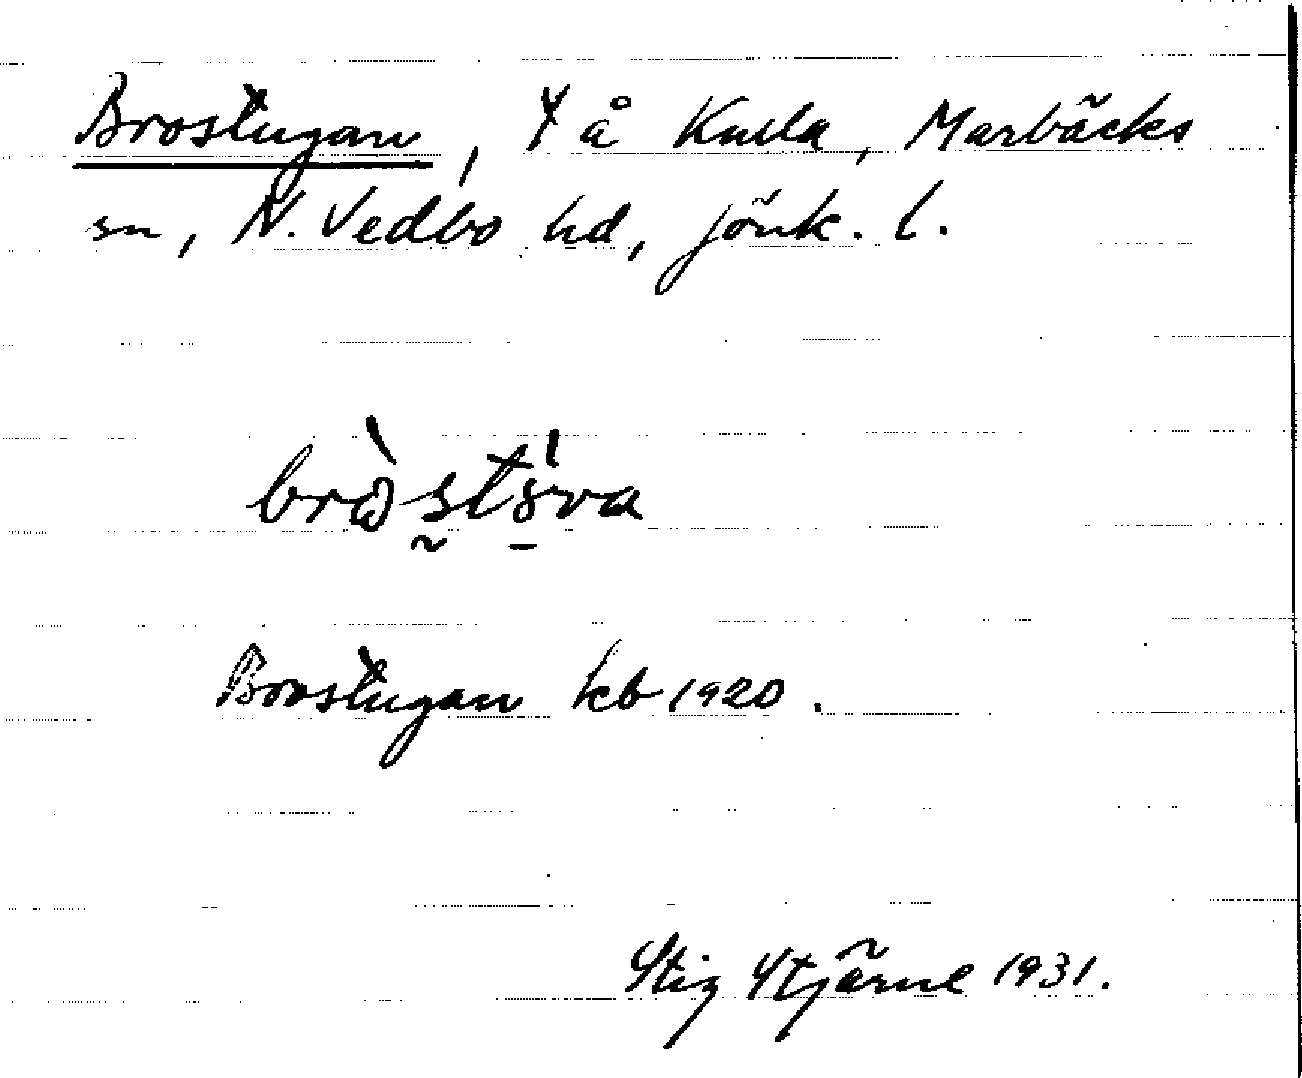 Brostugan, † å Kulla, Marbäcks
sn, N. Vedbo hd, Jönk. l.
Brostugan kb 1920.
Stig Stjärne 1931.